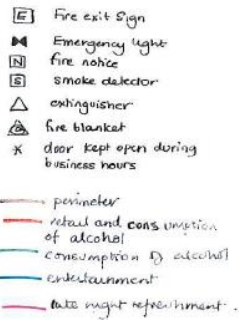 E Fire exit Sign
Emergency light
N fire notice
S smoke detector
extinguisher
fire blanket
door kept open during
business hours
perimeter
retail and consumption
of alcohol
consumption of alcohol
entertainment
late night refreshment.